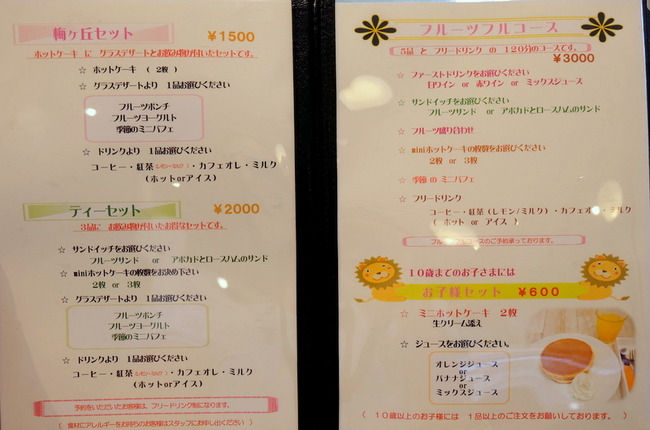 梅ヶ丘セット ￥1500
ホットケーキ に グラスデザートとお飲み物が付いたセットです。
☆ ホットケーキ ( 2枚 )
☆ グラスデザートより 1品お選びください
フルーツポンチ
フルーツヨーグルト
季節のミニパフェ
☆ ドリンクより 1品お選びください
コーヒー・紅茶(レモン・ミルク)・カフェオレ・ミルク
(ホットorアイス)
ティーセット ￥2000
3品に お飲み物が付いたお得なセットです。
☆ サンドイッチをお選びください
フルーツサンド or アボカドとロースハムのサンド
☆ miniホットケーキの枚数をお決め下さい
2枚 or 3枚
☆ グラスデザートより 1品お選びください
フルーツポンチ
フルーツヨーグルト
季節のミニパフェ
☆ ドリンクより 1品お選びください
コーヒー・紅茶(レモン・ミルク)・カフェオレ・ミルク
(ホットorアイス)
予約をいただいたお客様は、フリードリンク制になります。
( 食材にアレルギーをお持ちのお客様はスタッフにお申し出ください )
フルーツフルコース
5品 と フリードリンク の 120分のコースです。
￥3000
☆ ファーストドリンクをお選びください
白ワイン or 赤ワイン or ミックスジュース
☆ サンドイッチをお選びください
フルーツサンド or アボカドとロースハムのサンド
☆ フルーツ盛り合わせ
☆ miniホットケーキの枚数をお選びください
2枚 or 3枚
☆ 季節 の ミニパフェ
☆ フリードリンク
コーヒー・紅茶(レモン/ミルク)・カフェオレ・ミルク
( ホット or アイス )
フルーツフルコースのご予約承っております。
10歳までのお子さまには
お子様セット ￥600
☆ ミニホットケーキ 2枚
生クリーム添え
☆ ジュースをお選びください。
オレンジジュース
or
バナナジュース
or
ミックスジュース
( 10歳以上のお子様には 1品以上のご注文をお願いしております。 )